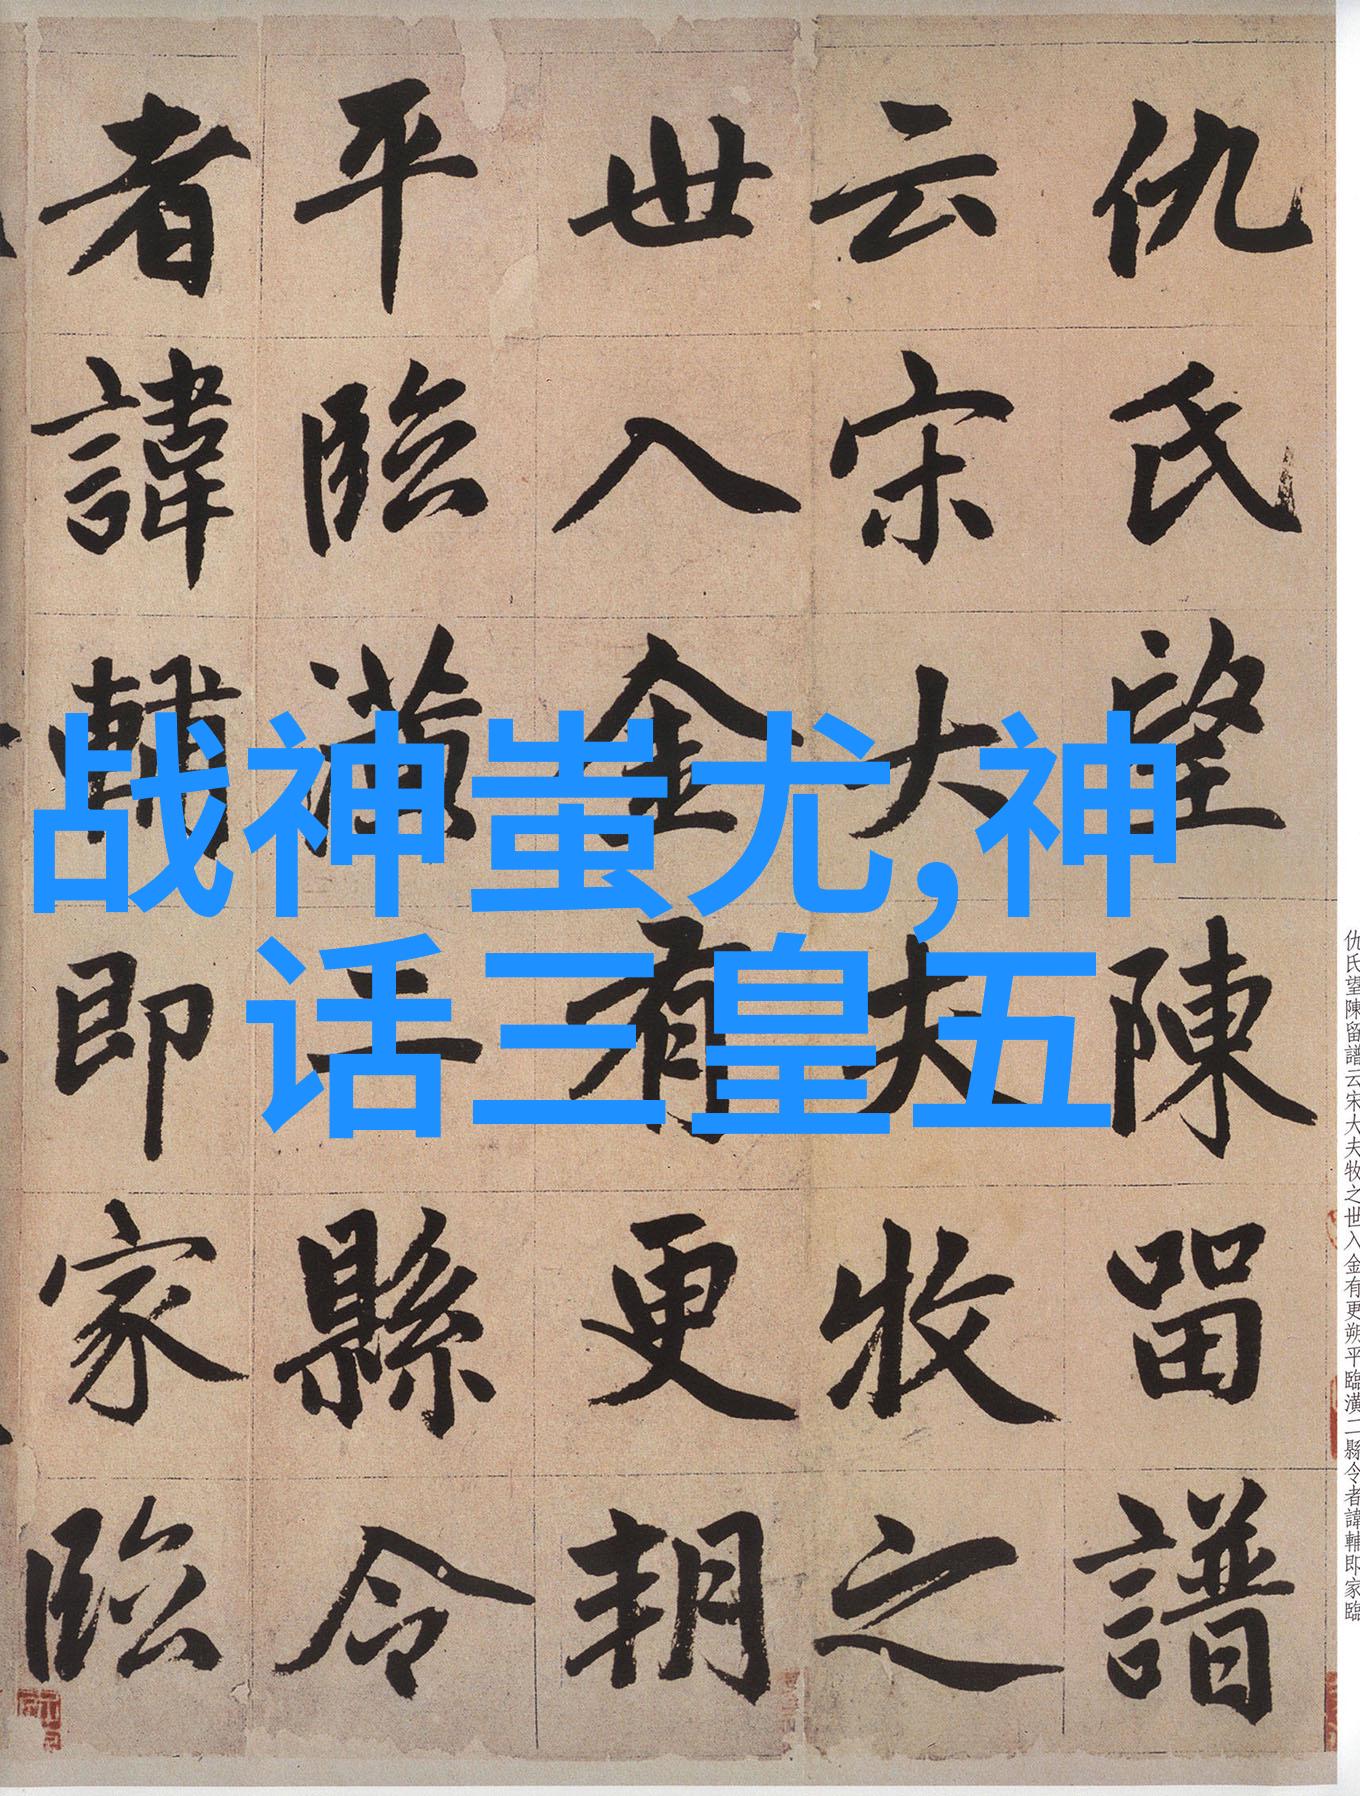 仇氏望陳留譜
云宋大夫牧之
世入金有更朔
平臨潢二縣令
者諱輔即家臨
战神蚩尤,神
话三皇五
仇氏望陳留譜云宋大夫牧之世入金有更朔平臨潢二縣令者諱輔即家臨